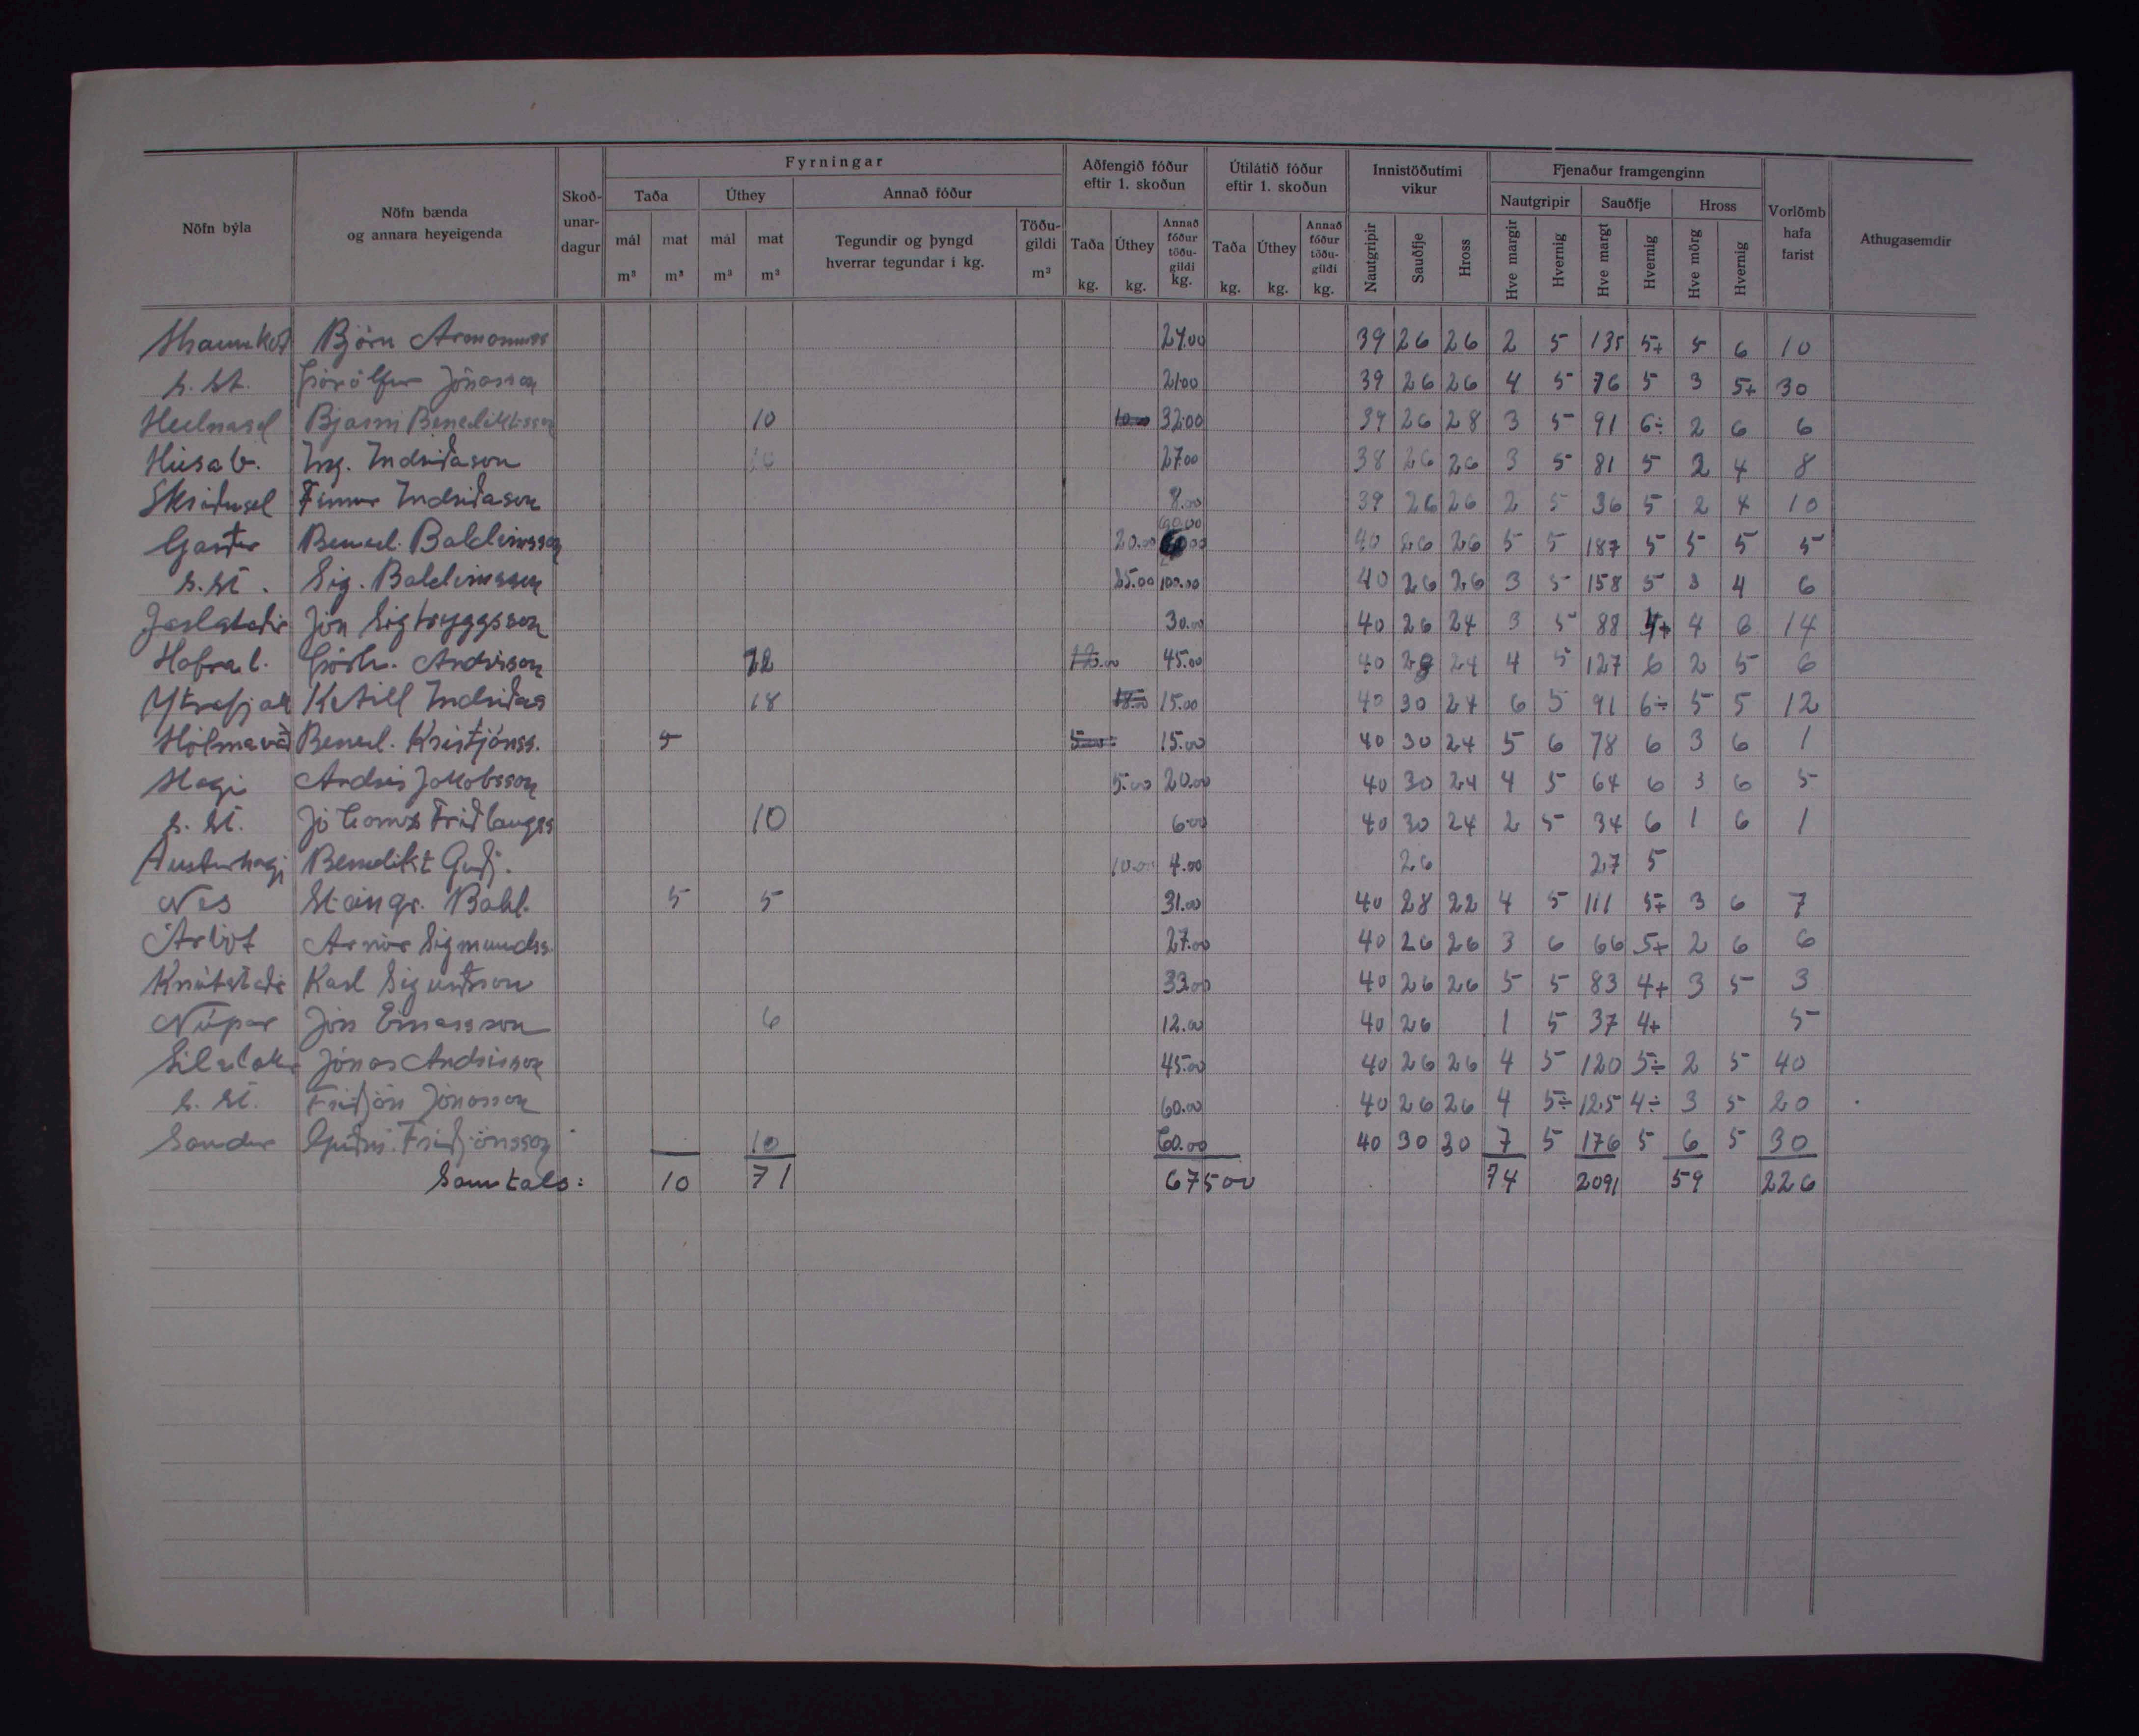 Fyrningar
Aðfengið fóður eftir 1. skoðun
Útilátið fóður eftir 1. skoðun
Innistöðutími vikur
Fjenaður framgenginn
Nöfn býla
Nöfn bænda og annara heyeigenda
Skoð-unar-dagur
Taða
Úthey
Annað fóður
Nautgripir
Sauðfje
Hross
Vorlömb hafa farist
Athugasemdir
mál m³
mat m³
mál m³
mat m³
Tegundir og þyngd hverrar tegundar í kg.
Töðu-gildi m³
Taða kg.
Úthey kg.
Annað fóður töðu-gildi kg.
Taða kg.
Úthey kg.
Annað fóður töðu-gildi kg.
Nautgripir
Sauðfje
Hross
Hve margir
Hvernig
Hve margt
Hvernig
Hve mörg
Hvernig
Hraunkot Björn Ármannss 24.00 39 26 26 2 5 135 5+ 5 6 10
s. st. Þórólfur Jónasson 21.00 39 26 26 4 5 76 5 3 5+ 30
Bjarni Benediktsson 10 32.00 39 26 28 3 5 91 6÷ 2 6 6
Húsab. Ing. Indriðason 27.00 38 26 26 3 5 81 5 2 4 8
Skriðusel Finnur Indriðason 8.00 39 26 26 2 5 36 5 2 4 10
Garður Bened. Baldvinsson 20.00 60.00 40 26 26 5 5 187 5 5 5 5
s. st. Sig. Baldvinsson 25.00 100.00 40 26 26 3 5 158 5 3 4 6
Jarlstaðir Jón Sigtryggsson 30.00 40 26 24 3 5 88 4+ 4 6 14
Hafral. Þórh. Andrésson 22 12.00 45.00 40 28 24 4 5 127 6 2 5 6
Ytrafjall Ketill Indriðas 18 18.00 15.00 40 30 24 6 5 91 6÷ 5 5 12
Hólmavað Bened. Kristjánss. 5 5.00 15.00 40 30 24 5 6 78 6 3 6 1
Hagi Andrés Jakobsson 5.00 20.00 40 30 24 4 5 64 6 3 6 5
s. st. Jóhannes Friðlaugss 10 6.00 40 30 24 2 5 34 6 1 6 1
Austurhagi Benedikt Guðj. 10.00 4.00 26 27 5
Nes Steingr. Bald. 5 5 31.00 40 28 22 4 5 111 5+ 3 6 7
Árbót Arnór Sigmundss. 27.00 40 26 26 3 6 66 5+ 2 6 6
Knútstaðir Karl Sigurðsson 33.00 40 26 26 5 5 83 4+ 3 5 3
Núpar Jón Einarsson 6 12.00 40 26 1 5 37 4+ 5
Sílalækur Jónas Andrésson 45.00 40 26 26 4 5 120 5÷ 2 5 40
s. st. Friðjón Jónasson 60.00 40 26 26 4 5÷ 125 4÷ 3 5 20
Sandur Guðm. Friðjónsson 10 60.00 40 30 30 7 5 176 5 6 5 30
Samtals: 10 71 675 00 74 2091 59 226